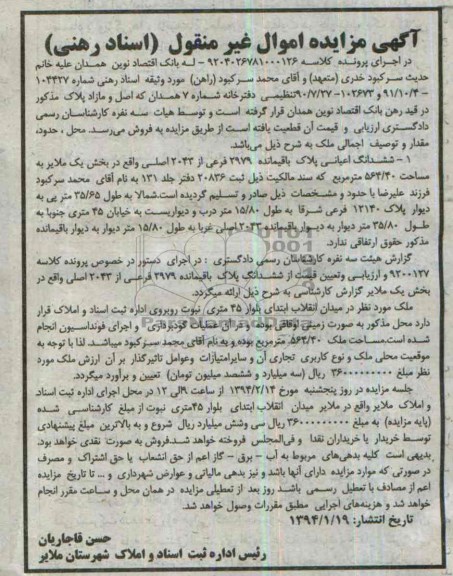 آگهی مزایده اموال غیر منقول (اسناد رهنی)
در اجرای پرونده کلاسه ۹۲۰۴۰۲۶۷۸۱۰۰۰۱۲۶ - له بانک اقتصاد نوین همدان علیه خانم
حدیث سرکبود خدری (متعهد) و آقای محمد سرکبود (راهن) مورد وثیقه اسناد رهنی شماره ۱۰۴۴۲۷
- ۹۱/۱۰/۴ و ۱۰۲۶۷۳-۹۰/۷/۲۷ تنظیمی دفترخانه شماره ۷ همدان که اصل و مازاد پلاک مذکور
در قید رهن بانک اقتصاد نوین همدان قرار گرفته است و توسط هیات سه نفره کارشناسان رسمی
دادگستری ارزیابی و قیمت آن قطعیت یافته است از طریق مزایده به فروش می‌رسد. محل ، حدود،
مقدار و توصیف اجمالی ملک به شرح ذیل می‌باشد.
۱ - ششدانگ اعیانی پلاک باقیمانده ۲۹۷۹ فرعی از ۲۰۴۳ اصلی واقع در بخش یک ملایر به
مساحت ۵۶۴/۴۰ مترمربع که سند مالکیت ذیل ثبت ۲۰۸۳۶ دفتر جلد ۱۳۱ به نام آقای محمد سرکبود
فرزند علیرضا با حدود و مشخصات ذیل صادر و تسلیم گردیده است.شمالا به طول ۳۵/۶۵ متر پی به
دیوار پلاک ۱۲۱۴۰ فرعی شرقا به طول ۱۵/۸۰ متر درب و دیواریست به خیابان ۴۵ متری جنوبا به
طول ۳۵/۸۰ متر دیوار به دیوار باقیمانده ۲۰۴۳ اصلی غربا به طول ۱۵/۸۰ متر دیوار به دیوار باقیمانده
مذکور حقوق ارتفاقی ندارد.
گزارش هیئت سه نفره کارشناسان رسمی دادگستری : در اجرای دستور در خصوص پرونده کلاسه
۹۲۰۰۱۲۷ و ارزیابی و تعیین قیمت از ششدانگ پلاک باقیمانده ۲۹۷۹ فرعی از ۲۰۴۳ اصلی واقع در
بخش یک ملایر گزارش کارشناسی به شرح ذیل ارائه میگردد.
ملک مورد نظر در میدان انقلاب ابتدای بلوار ۴۵ متری نبوت روبروی اداره ثبت اسناد و املاک قرار
دارد محل مذکور به صورت زمینی اوقافی بوده و در آن عملیات گودبرداری و اجرای فونداسیون انجام
شده است.مساحت ملک ۵۶۴/۴۰ مترمربع بوده و به نام آقای محمد سرکبود میباشد. لذا با توجه به
موقعیت محلی ملک و نوع کاربری تجاری آن و سایر امتیازات وعوامل تاثیرگذار بر آن ارزش ملک مورد
نظر مبلغ ۳۶۰۰۰۰۰۰۰۰۰ ریال (سه میلیارد و ششصد میلیون تومان) تعیین و برآورد میگردد.
جلسه مزایده در روز پنجشنبه مورخ ۱۳۹۴/۲/۱۴ از ساعت ۹الی ۱۲ در محل اجرای اداره ثبت اسناد
و املاک ملایر واقع در ملایر میدان انقلاب ابتدای بلوار ۴۵متری نبوت از مبلغ کارشناسی شده
(پایه مزایده) به مبلغ ۳۶۰۰۰۰۰۰۰۰۰ ریال سی وشش میلیارد ریال شروع و به بالاترین مبلغ پیشنهادی
توسط خریدار یا خریداران نقدا و فی‌المجلس فروخته خواهد شد.فروش به صورت نقدی خواهد بود.
بدیهی است کلیه بدهی‌های مربوط به آب - برق - گاز اعم از حق انشعاب یا حق اشتراک و مصرف
در صورتی که موارد مزایده دارای آنها باشد و نیز بدهی مالیاتی و عوارض شهرداری و ... تا تاریخ مزایده
اعم از مصادف با تعطیل رسمی باشد روز بعد از تعطیلی مزایده در همان محل و ساعت مقرر انجام
خواهد شد و هزینه‌های اجرایی مطابق مقررات وصول خواهد شد.
تاریخ انتشار: ۱۳۹۴/۱/۱۹
حسن قاجاریان
رئیس اداره ثبت اسناد و املاک شهرستان ملایر